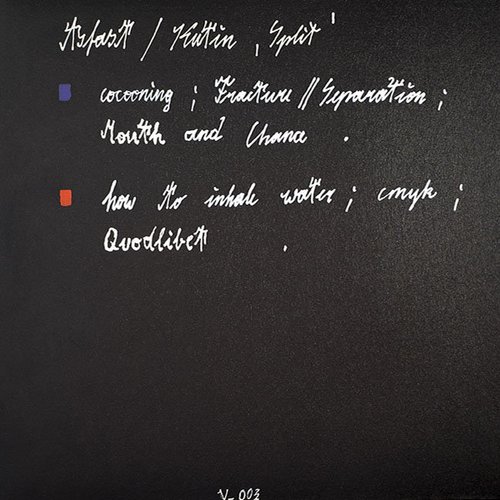 tsfast / Kutin ‚Split'
cocooning ; Fracture // Separation ;
Mouth and Chana .
how to inhale water ; cmyk ;
Quodlibet .
V_003